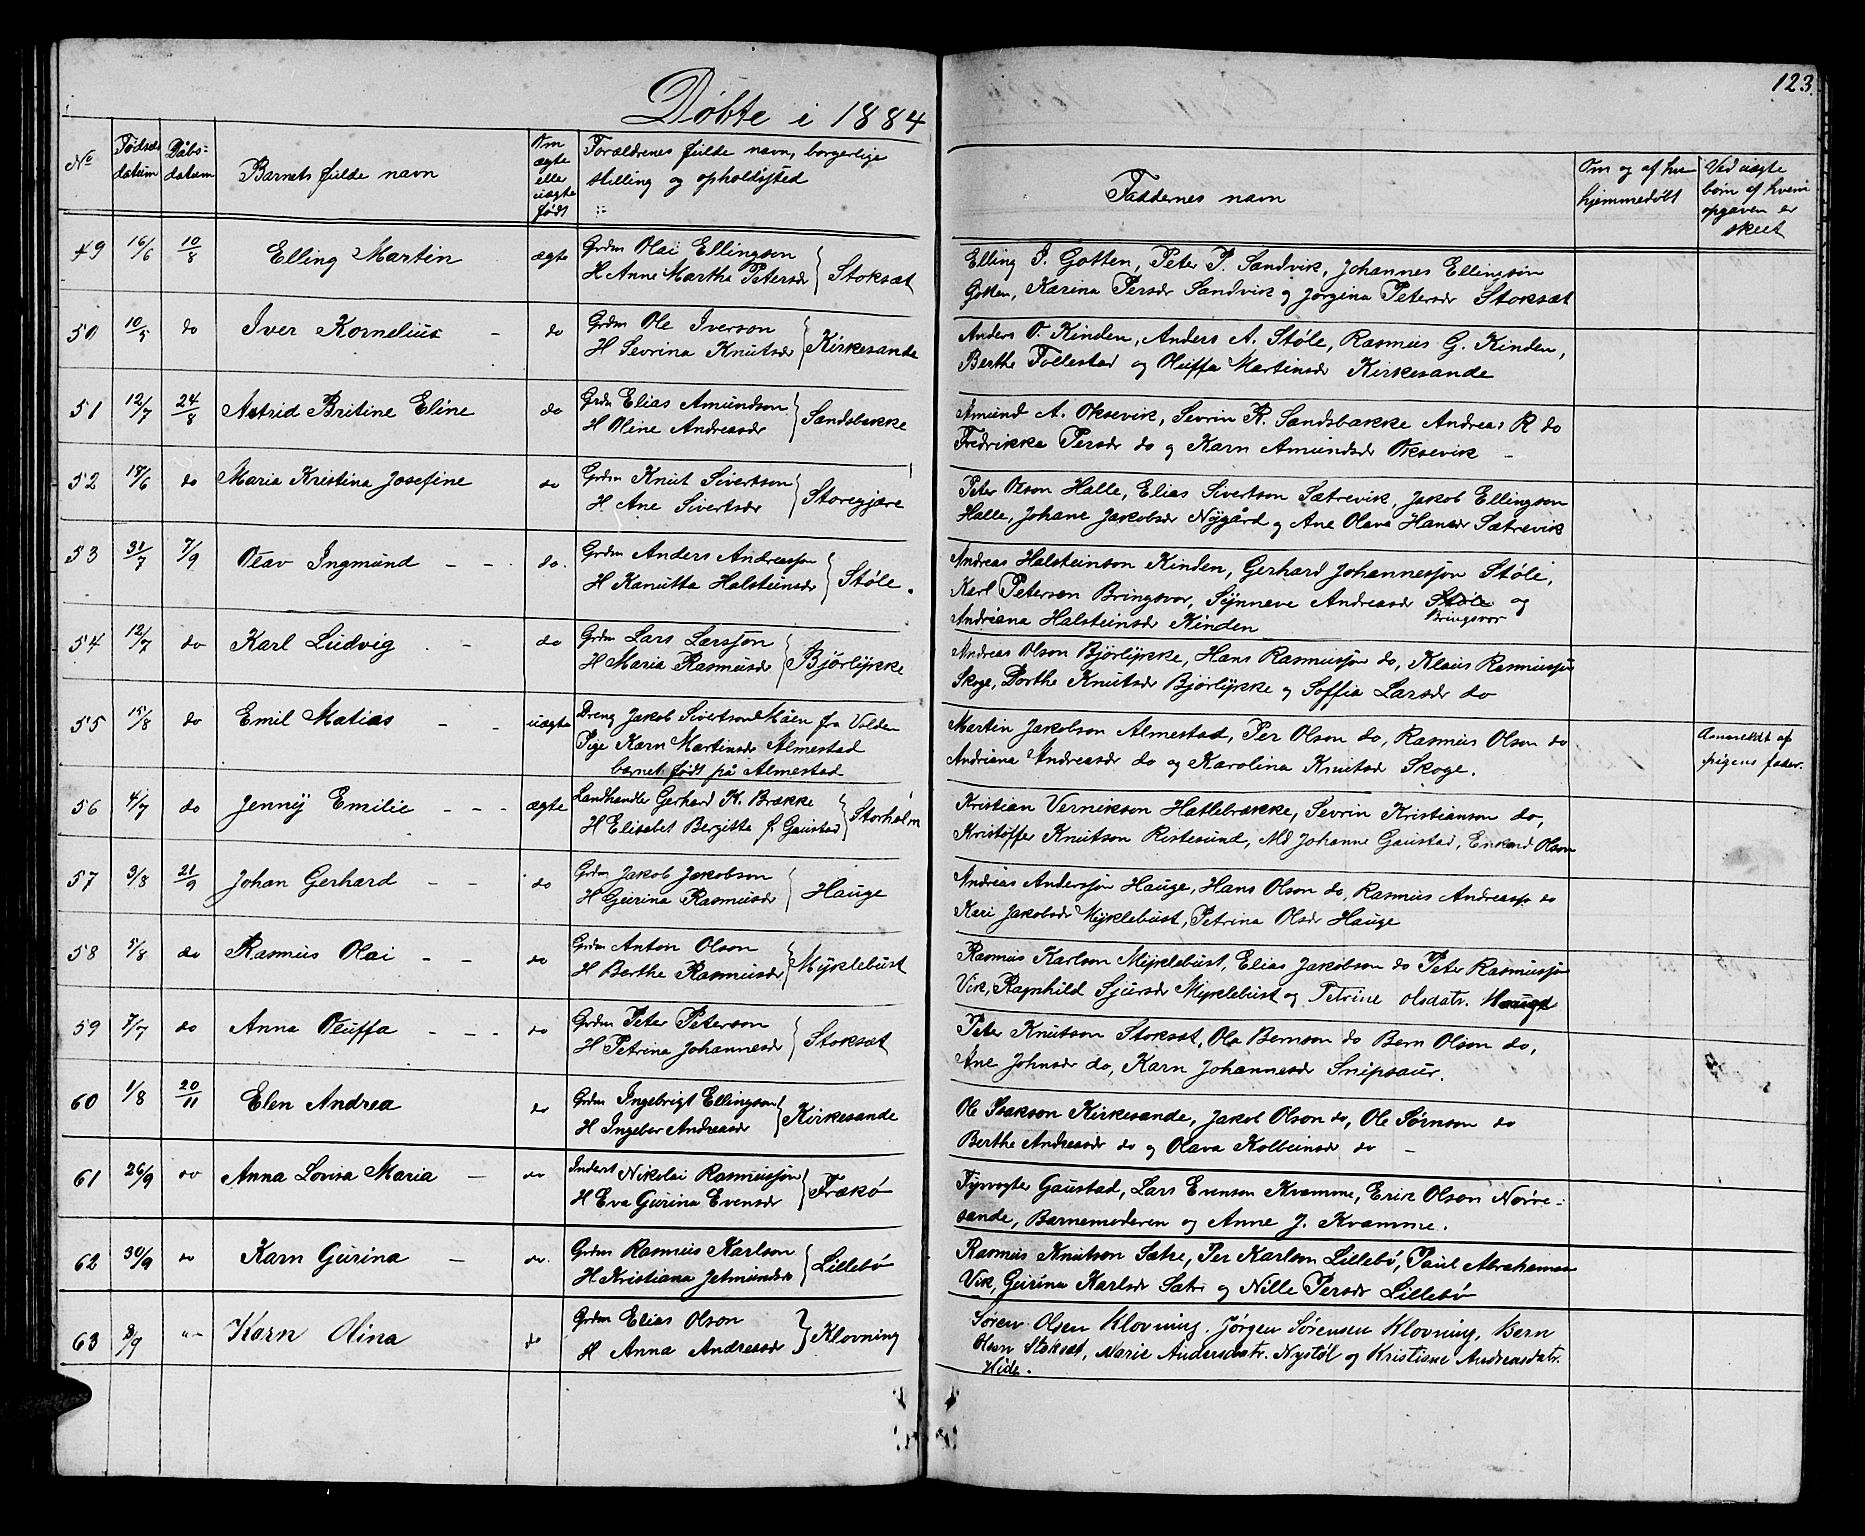 Døbte i 1884
123.
No
Fødsels datum
Dåbs- datum
Barnets fulde navn
Om ægte eller uægte født
Forældrenes fulde navn, borgerlige stilling og opholdssted
Faddernes navn
Om og af hvem hjemmedøbt
Ved uægte børn af hvem opgaven er skeet
49 16/6 10/8 Elling Martin ægte Grdm Olai Ellingson
H Anne Marthe Petersdr } Stoksæt
Elling I. Gotten, Peter P. Sandvik, Johannes Ellingson
Gotten, Karina Persdr Sandvik og Jørgina Petersdr Stoksæt
50 10/5 do Iver Kornelius - do Grdm Ole Iverson
H Sevrina Knutsdr } Kirkesande
Anders O. Kinden, Anders A. Støle, Rasmus G. Kinden,
Berthe Follestad og Oluffa Martinsdr Kirkesande
51 12/7 24/8 Astrid Britine Eline do Grdm Elias Amundson
H Oline Andreasdr } Sandsbakke
Amund A. Oksevik, Sevrin R. Sandsbakke Andreas R do
Fredrikke Persdr do og Karn Amundsdr Oksevik -
52 18/6 do Maria Kristina Josefine do Grdm Knut Sivertson
H Ane Sivertsdr } Storegjære
Peter Olson Halle, Elias Sivertson Sætrevik, Jakob Ellingson
Halle, Johane Jakobsdr Nygård og Ane Olava Hansdr Sætrevik
53 31/7 7/9 Olav Ingmund - - do. Grdm Anders Andreassøn
H Kanutta Halsteinsdr } Støle.
Andreas Halsteinson Kinden, Gerhard Johannesson Støle,
Karl Peterson Bringsvor, Synneve Andreasdr Støle og
Bringsvor
Andriana Halsteinsdr Kinden
54 12/7 do Karl Ludvig - do Grdm Lars Larsson
H Maria Rasmusdr } Bjørlykke
Andreas Olson Bjørlykke, Hans Rasmusson do, Klaus Rasmusson
Skoge, Dorthe Knutsdr Bjørlykke og Soffia Larsdr do
55 15/8 do Emil Matias - - uægte Dreng Jakob Sivertson Måen fra Volden
Pige Karn Martinsdr Almestad
barnet født på Almestad
Martin Jakobson Almestad, Per Olson do, Rasmus Olson do
Andriana Andreasdr do og Karolina Knutsd Skoge.
Anmeldt af
pigens fader.
56 4/7 do Jenny Emilie - - - ægte Landhandler Gerhard K. Brække
H Elisabet Bergitte f. Gaustad } Storholm
Kristian Vernikson Hatlebrække, Sevrin Kristianson do,
Kristoffer Knutson Ristesund, Md Johanne Gaustad, Enkemd Olson
57 3/8 21/9 Johan Gerhard - - do Grdm Jakob Jakobson
H Gurina Rasmusdr } Hauge
Andreas Andersson Hauge, Hans Olson do, Rasmus Andreasson do
Kari Jakobsdr Myklebust, Petrina Olsdr Hauge
58 5/8 do Rasmus Olai - - do Grdm Anton Olson
H Berthe Rasmusdr } Myklebust
Rasmus Karlson Myklebust, Elias Jakobson do Peter Rasmusson
Vik, Ragnhild Sjursdr Myklebust og Petrine Olsdatr. Hauge
59 7/7 do Anna Oluffa - - - do Grdm Peter Peterson
H Petrina Johannesdr } Stoksæt
Peter Knutson Stoksæt, Ole Bernson do Bern Olson do,
Ane Johnsdr do, Karn Johannesdr Snipsøur.
60 1/8 20/11 Elen Andrea do Grdm Ingebrigt Ellingson
H Ingebor Andreasdr } Kirkesande
Ole Isakson Kirkesande, Jakob Olson do, Ole Sørnson do
Berthe Andreasdr do og Olava Kolbeinsdr do -
61 26/9 do Anna Lovisa Maria - do Inderst Nikolai Rasmusson
H Eva Gurina Evensdr } Frækø
Fyrvogter Gaustad, Lars Evenson Kvamme, Erik Olson Nørve-
sande, Barnemoderen og Anne J. Kvamme.
62 30/9 do Karn Gurina - do. Grdm Rasmus Karlson
H Kristiana Jetmundsdr } Lillebø
Rasmus Knutson Sætre, Per Karlson Lillebø, Paul Abrahamson
Vik, Gurina Karlsdr Sætr og Nille Persdr Lillebø
63 8/9 "- Karn Olina do Grdm Elias Olson
H Anna Andreasdr } Klovning
Søren Olsen Klovning, Jørgen Sørensen Klovning, Bern
Olsen Stoksæt, Marie Andersdatr. Nystøl og Kristiane Andreasdatr.
Hide.